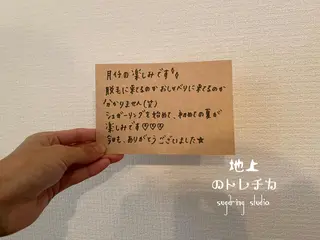 月イチの楽しみです
脱毛に来てるのかおしゃべりに来てるのか
わかりません(笑)
シュガーリングを始めて、初めての夏が
楽しみです♡♡♡
今日も、ありがとうございました★
地上
のトレチカ
sugaring studio